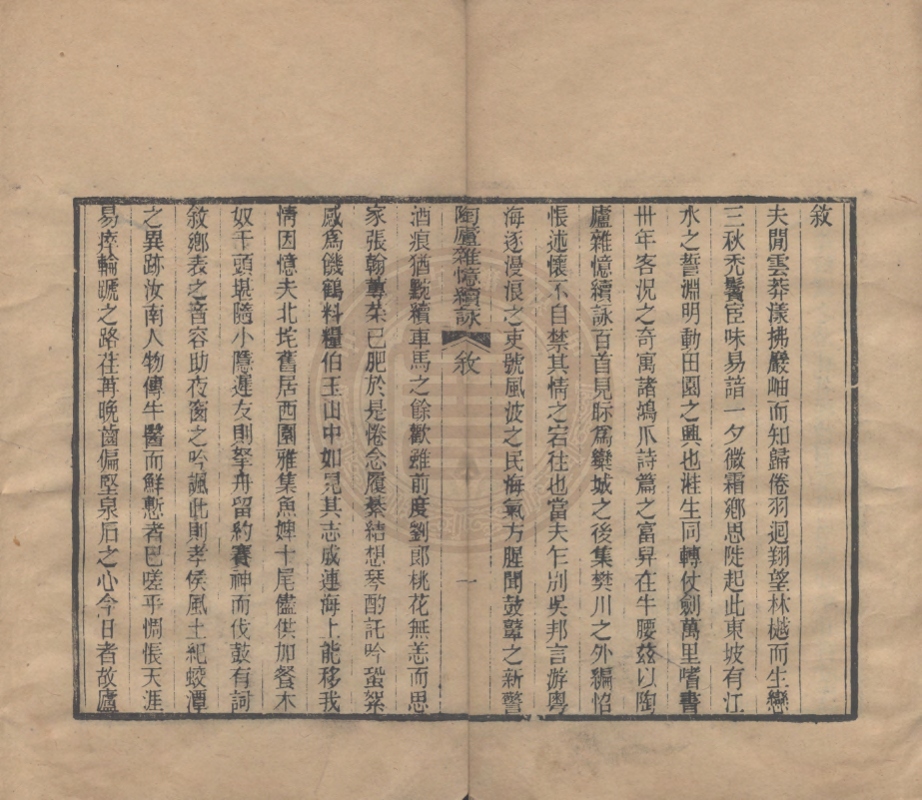 敘
夫閒雲莽漾拂巖岫而知歸倦羽迴翔望林樾而生戀
三秋禿鬢宦味易諳一夕微霜鄉思陡起此東坡有江
水之誓淵明動田園之興也湘生同轉仗劍萬里嗜書
卅年客況之奇寓諸鴻爪詩篇之富昇在牛腰茲以陶
廬雜憶續詠百首見眎爲欒城之後集樊川之外編怊
悵述懷不自禁其情之宕往也當夫乍別吳邦言游粵
海逐漫浪之叟號風波之民海氣方腥聞鼓鼙之新警
陶廬雜憶續詠 敘 一
酒痕猶黦續車馬之餘歡雖前度劉郎桃花無恙而思
家張翰蓴菜已肥於是惓念履綦結想琴酌託吟蛩絮
感爲饑鶴料糧伯玉山中如見其志成連海上能移我
情因憶夫北垞舊居西園雅集魚婢十尾儘供加餐木
奴千頭堪隨小隱遲友則拏舟留約賽神而伐鼓有詞
敘鄉表之音容助夜窗之吟諷此則孝侯風土紀蛟潭
之異跡汝南人物傳牛醫而鮮慙者已嗟乎惆悵天涯
易摧輪蹏之路荏苒晚齒偏堅泉石之心今日者故廬